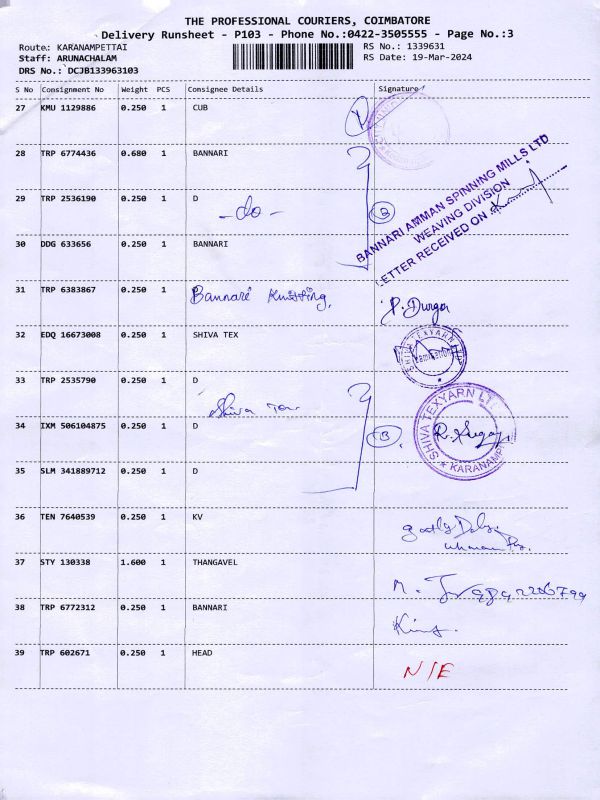 THE PROFESSIONAL COURIERS, COIMBATORE
Delivery Runsheet - P103 - Phone No.:0422-3505555 - Page No.:3
Route: KARANAMPETTAI
RS No.: 1339631
Staff: ARUNACHALAM
RS Date: 19-Mar-2024
DRS No.: DCJB133963103
S No Consignment No Weight PCS Consignee Details Signature
27 KMU 1129886 0.250 1 CUB
28 TRP 6774436 0.680 1 BANNARI
BANNARI AMMAN SPINNING MILLS LTD
WEAVING DIVISION
LETTER RECEIVED ON
29 TRP 2536190 0.250 1 D
-do-
B
30 DDG 633656 0.250 1 BANNARI
31 TRP 6383867 0.250 1 Bannari Knitting, P. Durga
32 EDQ 16673008 0.250 1 SHIVA TEX
SHIVA TEXYARN LTD
33 TRP 2535790 0.250 1 D
Shiva Tex
34 IXM 506104875 0.250 1 D
B.
SHIVA TEXYARN LT
KARANAMP
35 SLM 341889712 0.250 1 D
36 TEN 7640539 0.250 1 KV
37 STY 130338 1.600 1 THANGAVEL
38 TRP 6772312 0.250 1 BANNARI
King.
39 TRP 602671 0.250 1 HEAD
N/E